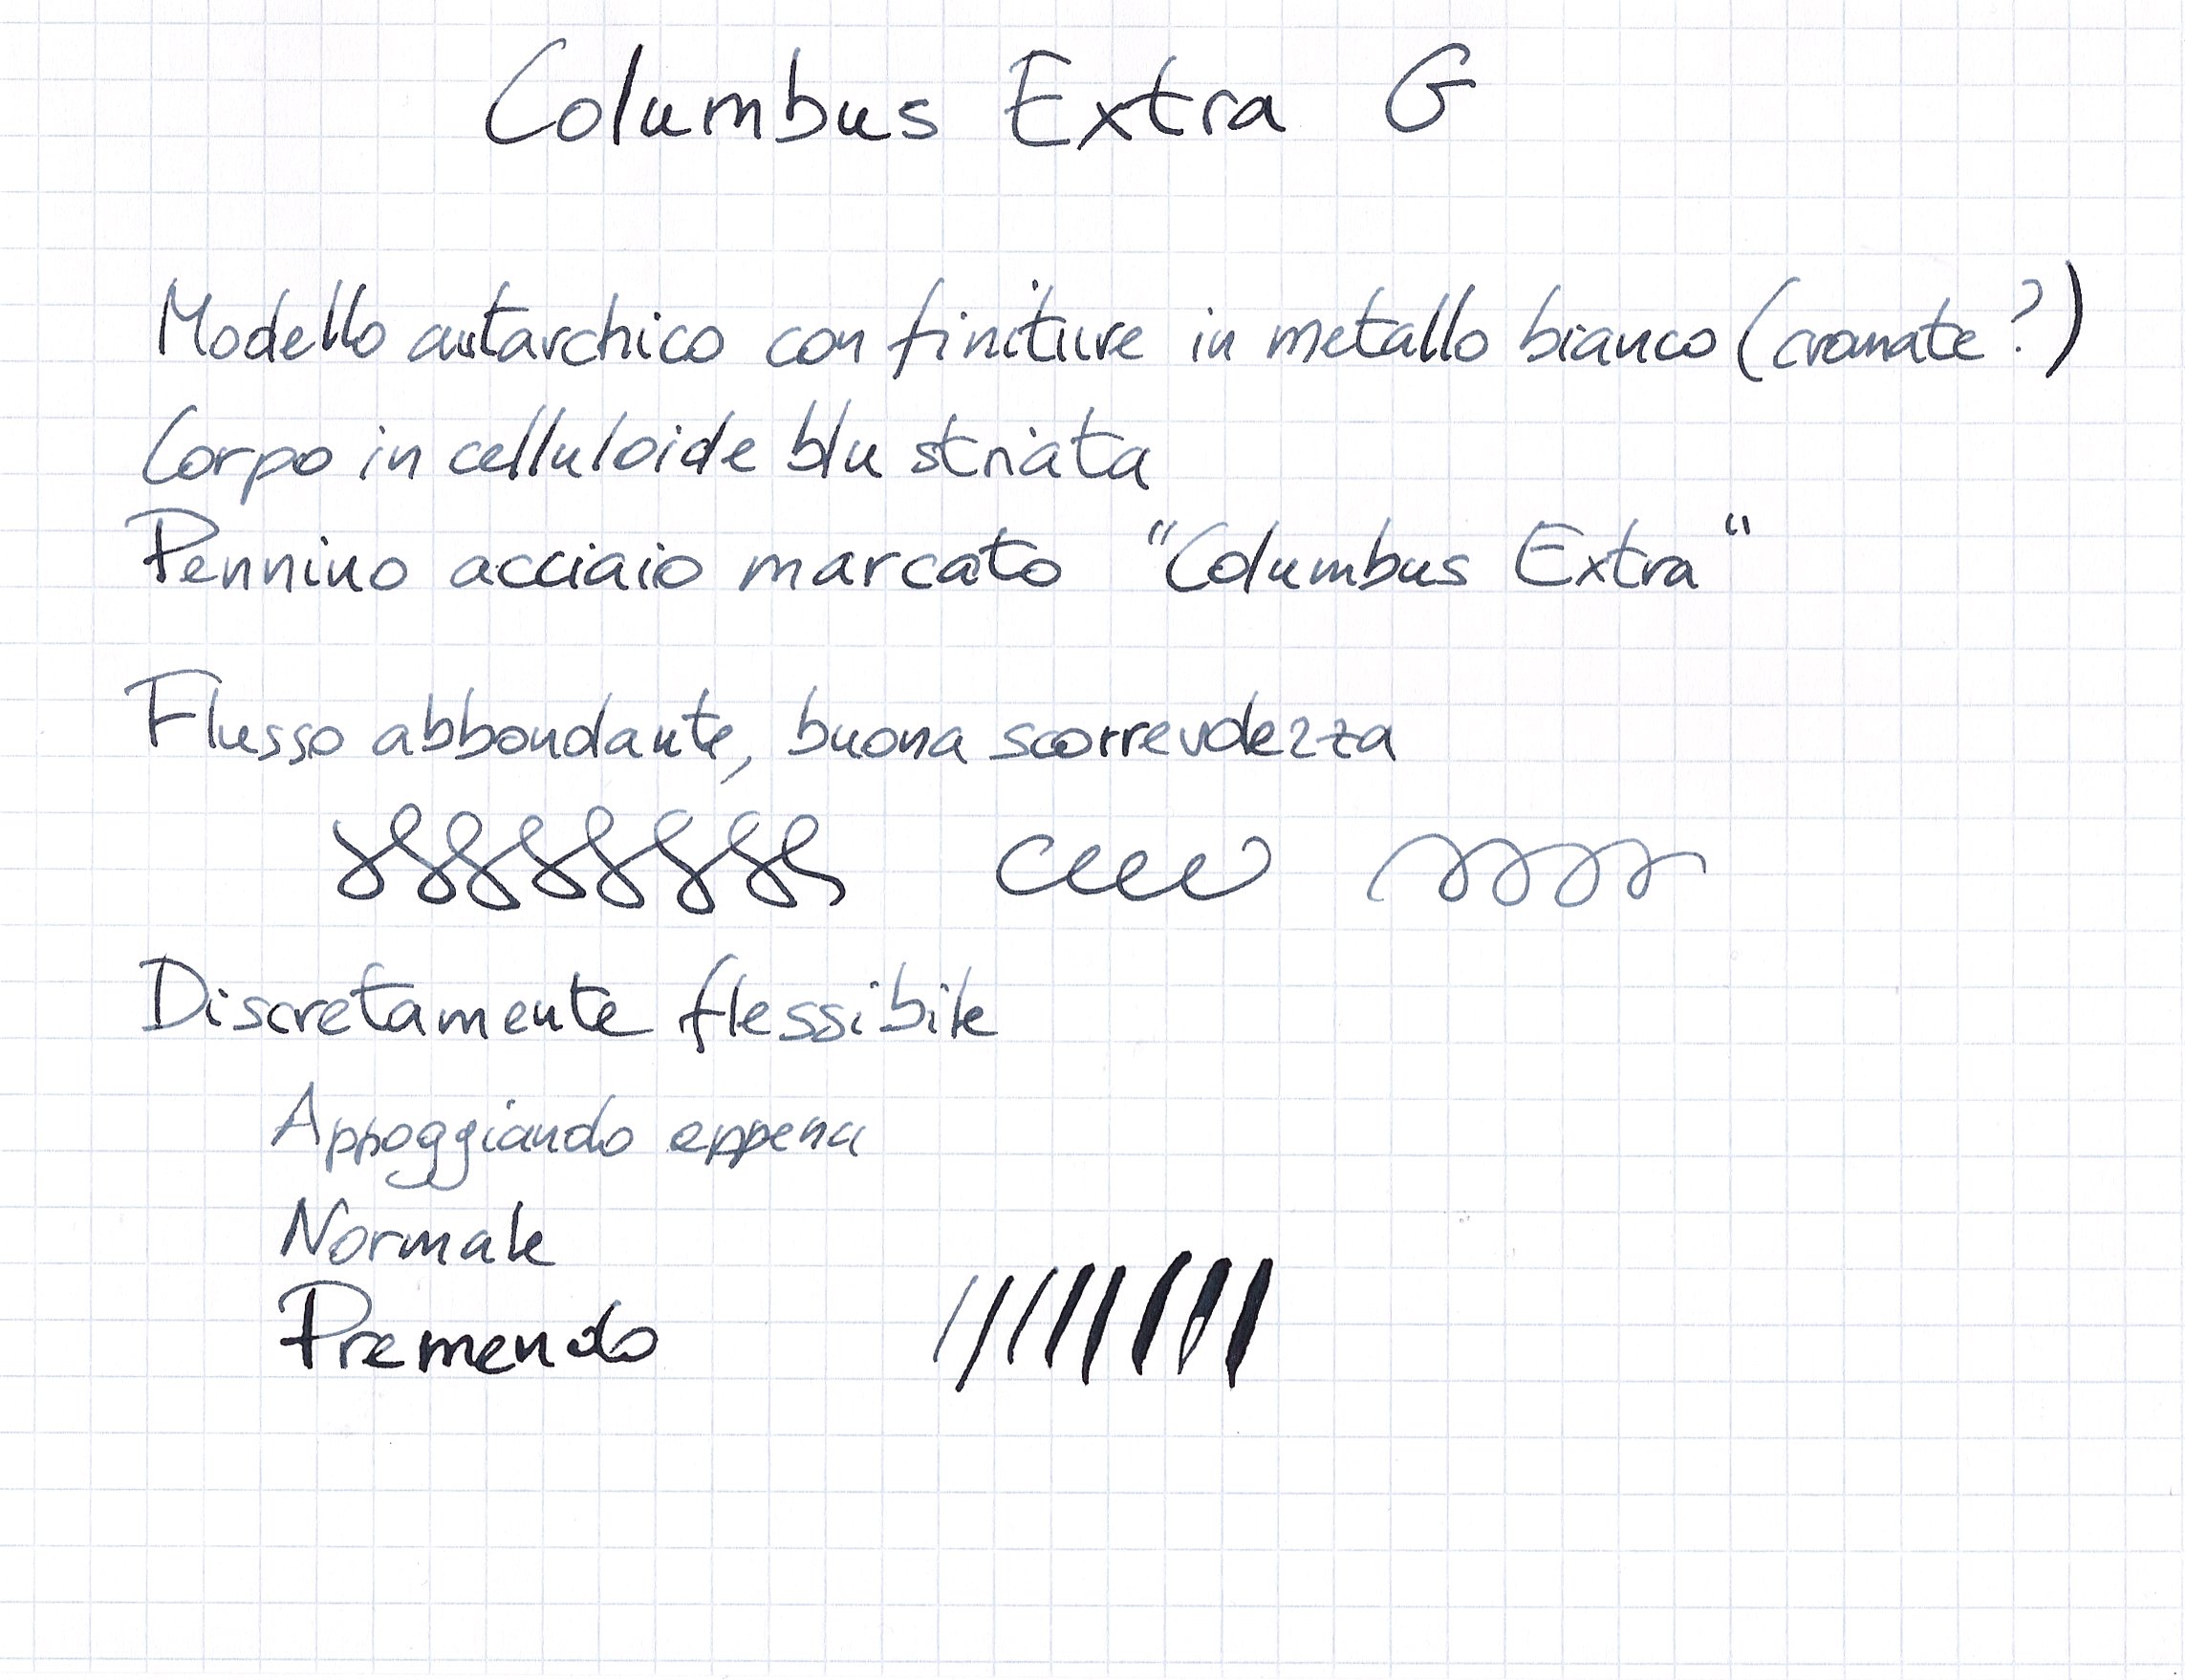 Columbus Extra G
Modello autarchico con finiture in metallo bianco (cromate?)
Corpo in celluloide blu striata
Pennino acciaio marcato "Columbus Extra"
Flusso abbondante, buona scorrevolezza
Discretamente flessibile
Appoggiando appena
Normale
Premendo